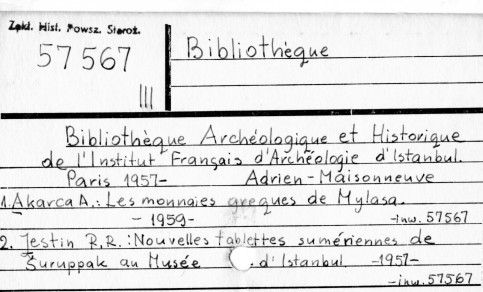 Zakł. Hist. Powsz. Staroż.
57567
III
Bibliothèque
Bibliothèque Archéologique et Historique
de l'Institut Français d'Archéologie d'Istanbul.
Paris 1957- Adrien-Maisonneuve
1. Akarca A.: Les monnaies greques de Mylasa.
- 1959- -inw. 57567
2. Jestin R.R.: Nouvelles tablettes sumériennes de
Šuruppak au Musée d'Istanbul -1957-
-inw. 57567